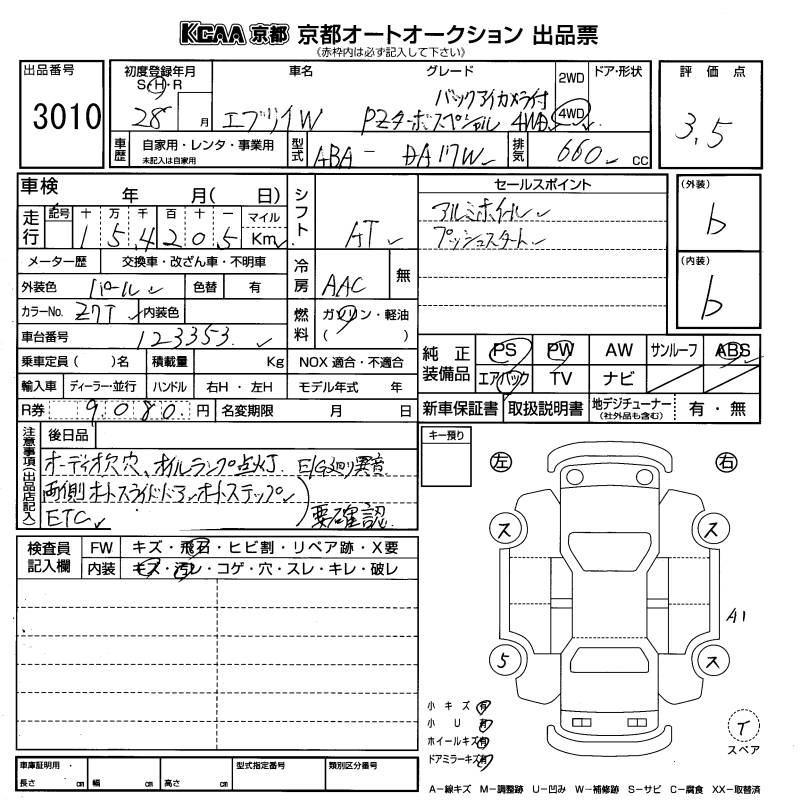 KCAA 京都 京都オートオークション 出品票
《赤枠内は必ず記入して下さい》
出品番号
3010
初度登録年月
S・H・R
28 月
車名
エブリイW
グレード
バックアイカメラ付
PZターボスペシャル 4WD
2WD
4WD
ドア・形状
評価点
3.5
車歴
自家用・レンタ・事業用
未記入は自家用
型式
ABA - DA17W
排気
660 CC
車検 年 月( 日)
走行
記号 十 万 千 百 十 一
1 5,4 2 0,5
マイル
Km
シフト
AT
セールスポイント
アルミホイール
プッシュスタート
(外装)
b
(内装)
b
メーター歴 交換車・改ざん車・不明車
外装色 パール 色替 有
冷房 AAC 無
カラーNo. Z7T 内装色
燃料 ガソリン・軽油
( )
車台番号 123353
乗車定員( )名 積載量 Kg NOX 適合・不適合
輸入車 ディーラー・並行 ハンドル 右H・左H モデル年式 年
R券 9080 円 名変期限 月 日
純正装備品
PS PW AW サンルーフ ABS
エアバック TV ナビ
新車保証書 取扱説明書 地デジチューナー (社外品も含む) 有・無
注意事項(出品店記入)
後日品
オーディオ欠穴、オイルランプ点灯、E/G廻り異音
両側オートスライドドア、オートステップ
ETC 要確認
キー預り
左 右
検査員記入欄
FW キズ・飛石・ヒビ割・リペア跡・X要
内装 キズ・汚レ・コゲ・穴・スレ・キレ・破レ
ス ス
A1
5 ス
小キズ 有
小U 有
ホイールキズ 有
ドアミラーキズ 有
T
スペア
車庫証明用
長さ cm 幅 cm 高さ cm
型式指定番号
類別区分番号
A－線キズ M－調整跡 U－凹み W－補修跡 S－サビ C－腐食 XX－取替済